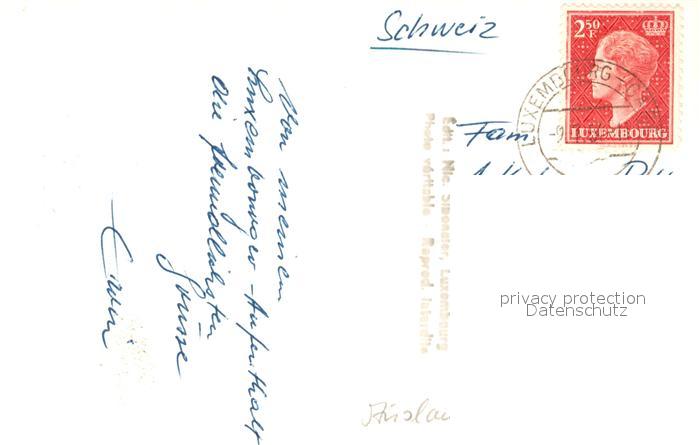 Schweiz
2.50
F
LUXEMBOURG
LUXEMBOURG
Fam
Von meinem
Luxembourger-Aufenthalt
die freundlichsten
Grüsse
Erwin
Edit.: Nic. Sibenaler, Luxembourg
Photo véritable - Reprod. interdite
privacy protection
Datenschutz